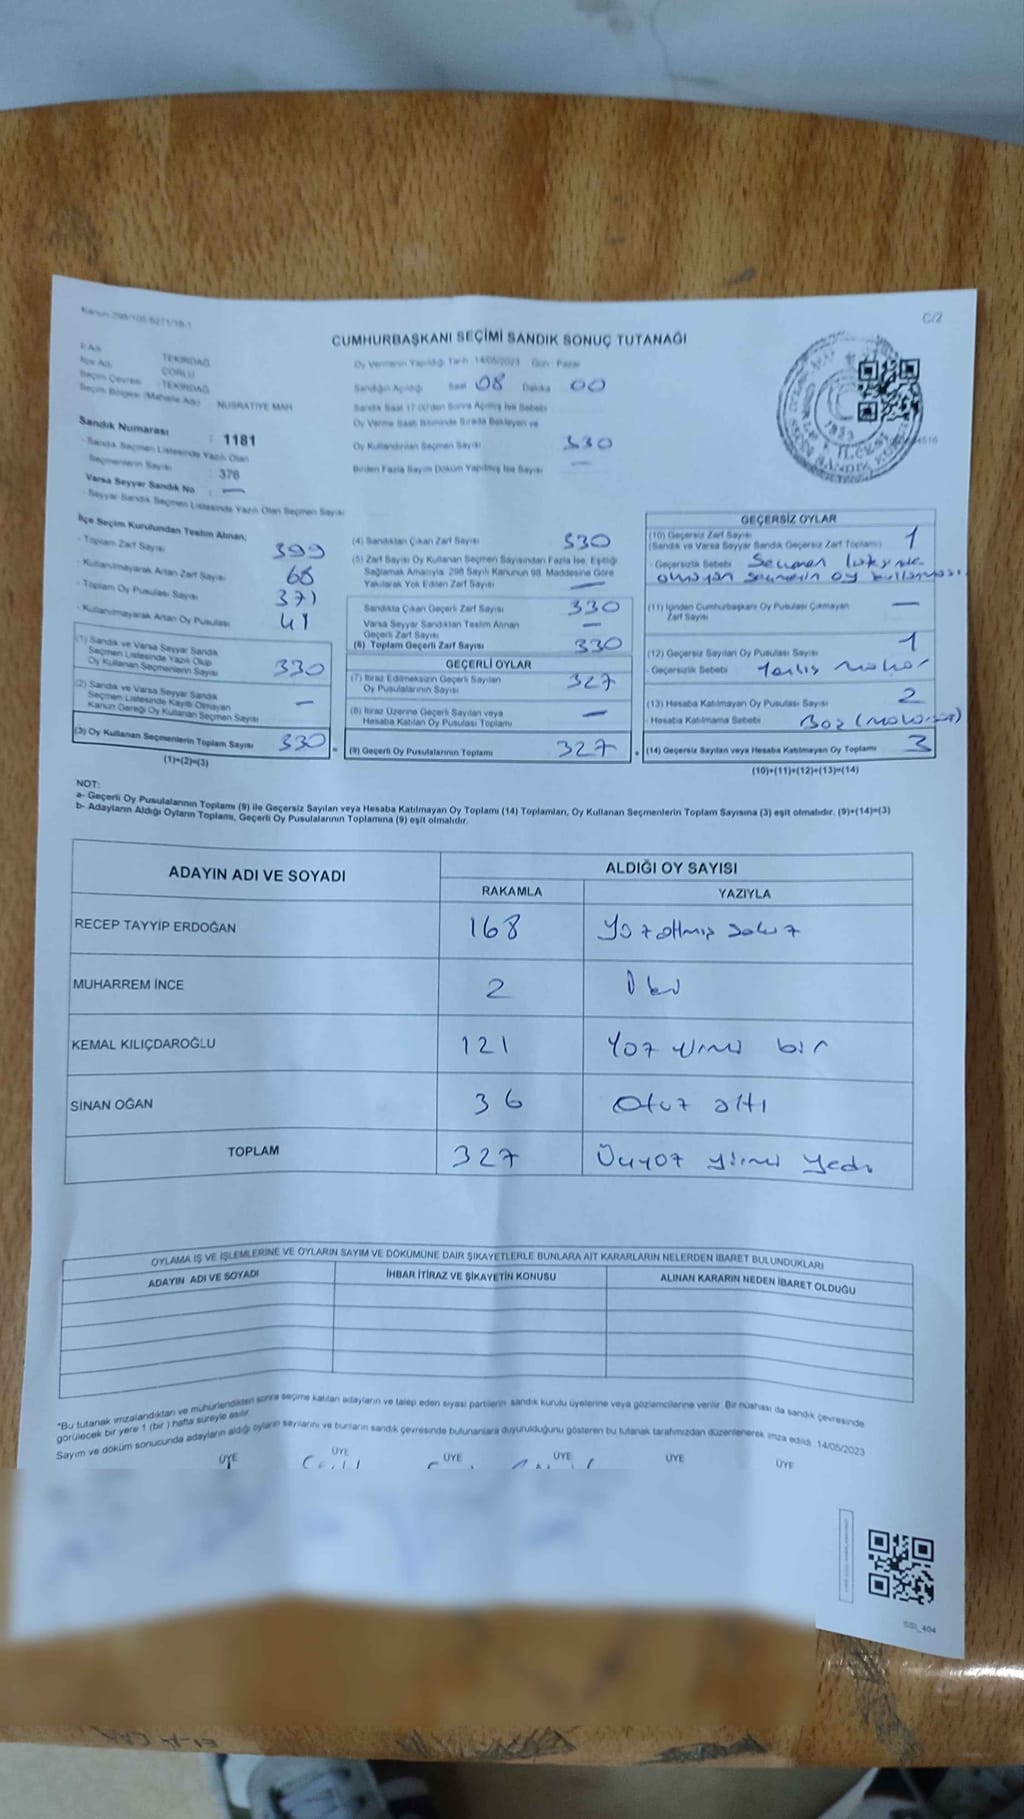 Kanun:298/105-6271/18-1
C/2
CUMHURBAŞKANI SEÇİMİ SANDIK SONUÇ TUTANAĞI
İl Adı : TEKİRDAĞ
İlçe Adı : ÇORLU
Seçim Çevresi : TEKİRDAĞ
Seçim Bölgesi (Mahalle Adı) NUSRATİYE MAH
Sandık Numarası : 1181
- Sandık Seçmen Listesinde Yazılı Olan
Seçmenlerin Sayısı : 376
Varsa Seyyar Sandık No : —
- Seyyar Sandık Seçmen Listesinde Yazılı Olan Seçmen Sayısı
Oy Vermenin Yapıldığı Tarih 14/05/2023 Gün : Pazar
Sandığın Açıldığı Saat 08 Dakika 00
Sandık Saat 17:00'den Sonra Açılmış İse Sebebi
Oy Verme Saati Bitiminde Sırada Bekleyen ve
Oy Kullandırılan Seçmen Sayısı 330
Birden Fazla Sayım Döküm Yapılmış İse Sayısı —
İlçe Seçim Kurulundan Teslim Alınan;
- Toplam Zarf Sayısı 399
- Kullanılmayarak Artan Zarf Sayısı 68
- Toplam Oy Pusulası Sayısı 371
- Kullanılmayarak Artan Oy Pusulası 41
(1) Sandık ve Varsa Seyyar Sandık
Seçmen Listesinde Yazılı Olup
Oy Kullanan Seçmenlerin Sayısı 330
(2) Sandık ve Varsa Seyyar Sandık
Seçmen Listesinde Kayıtlı Olmayan
Kanun Gereği Oy Kullanan Seçmen Sayısı —
(3) Oy Kullanan Seçmenlerin Toplam Sayısı 330 =
(1)+(2)=(3)
(4) Sandıktan Çıkan Zarf Sayısı 330
(5) Zarf Sayısı Oy Kullanan Seçmen Sayısından Fazla İse, Eşitliği
Sağlamak Amacıyla, 298 Sayılı Kanunun 98. Maddesine Göre
Yakılarak Yok Edilen Zarf Sayısı —
Sandıkta Çıkan Geçerli Zarf Sayısı 330
Varsa Seyyar Sandıktan Teslim Alınan
Geçerli Zarf Sayısı —
(6) Toplam Geçerli Zarf Sayısı 330
GEÇERLİ OYLAR
(7) İtiraz Edilmeksizin Geçerli Sayılan
Oy Pusulalarının Sayısı 327
(8) İtiraz Üzerine Geçerli Sayılan veya
Hesaba Katılan Oy Pusulası Toplamı —
(9) Geçerli Oy Pusulalarının Toplamı 327 +
GEÇERSİZ OYLAR
(10) Geçersiz Zarf Sayısı
(Sandık ve Varsa Seyyar Sandık Geçersiz Zarf Toplamı) 1
- Geçersizlik Sebebi Seçmen
olmayan seçmenin oy kullanması
(11) İçinden Cumhurbaşkanı Oy Pusulası Çıkmayan
Zarf Sayısı —
(12) Geçersiz Sayılan Oy Pusulası Sayısı 1
- Geçersizlik Sebebi Yanlış mühür
(13) Hesaba Katılmayan Oy Pusulası Sayısı 2
- Hesaba Katılmama Sebebi Boş
(14) Geçersiz Sayılan veya Hesaba Katılmayan Oy Toplamı 3
(10)+(11)+(12)+(13)=(14)
NOT:
a- Geçerli Oy Pusulalarının Toplamı (9) ile Geçersiz Sayılan veya Hesaba Katılmayan Oy Toplamı (14) Toplamları, Oy Kullanan Seçmenlerin Toplam Sayısına (3) eşit olmalıdır. (9)+(14)=(3)
b- Adayların Aldığı Oyların Toplamı, Geçerli Oy Pusulalarının Toplamına (9) eşit olmalıdır.
ADAYIN ADI VE SOYADI ALDIĞI OY SAYISI
RAKAMLA YAZIYLA
RECEP TAYYİP ERDOĞAN 168 Yüzaltmış sekiz
MUHARREM İNCE 2 İki
KEMAL KILIÇDAROĞLU 121 Yüz yirmi bir
SİNAN OĞAN 36 Otuz altı
TOPLAM 327 Üçyüz yirmi yedi
OYLAMA İŞ VE İŞLEMLERİNE VE OYLARIN SAYIM VE DÖKÜMÜNE DAİR ŞİKAYETLERLE BUNLARA AİT KARARLARIN NELERDEN İBARET BULUNDUKLARI
ADAYIN ADI VE SOYADI İHBAR İTİRAZ VE ŞİKAYETİN KONUSU ALINAN KARARIN NEDEN İBARET OLDUĞU
*Bu tutanak imzalandıktan ve mühürlendikten sonra seçime katılan adayların ve talep eden siyasi partilerin sandık kurulu üyelerine veya gözlemcilerine verilir. Bir nüshası da sandık çevresinde
görülecek bir yere 1 (bir ) hafta süreyle asılır.
Sayım ve döküm sonucunda adayların aldığı oyların sayılarını ve bunların sandık çevresinde bulunanlara duyurulduğunu gösteren bu tutanak tarafımızdan düzenlenerek imza edildi. 14/05/2023
ÜYE ÜYE ÜYE ÜYE ÜYE ÜYE
SSI_404